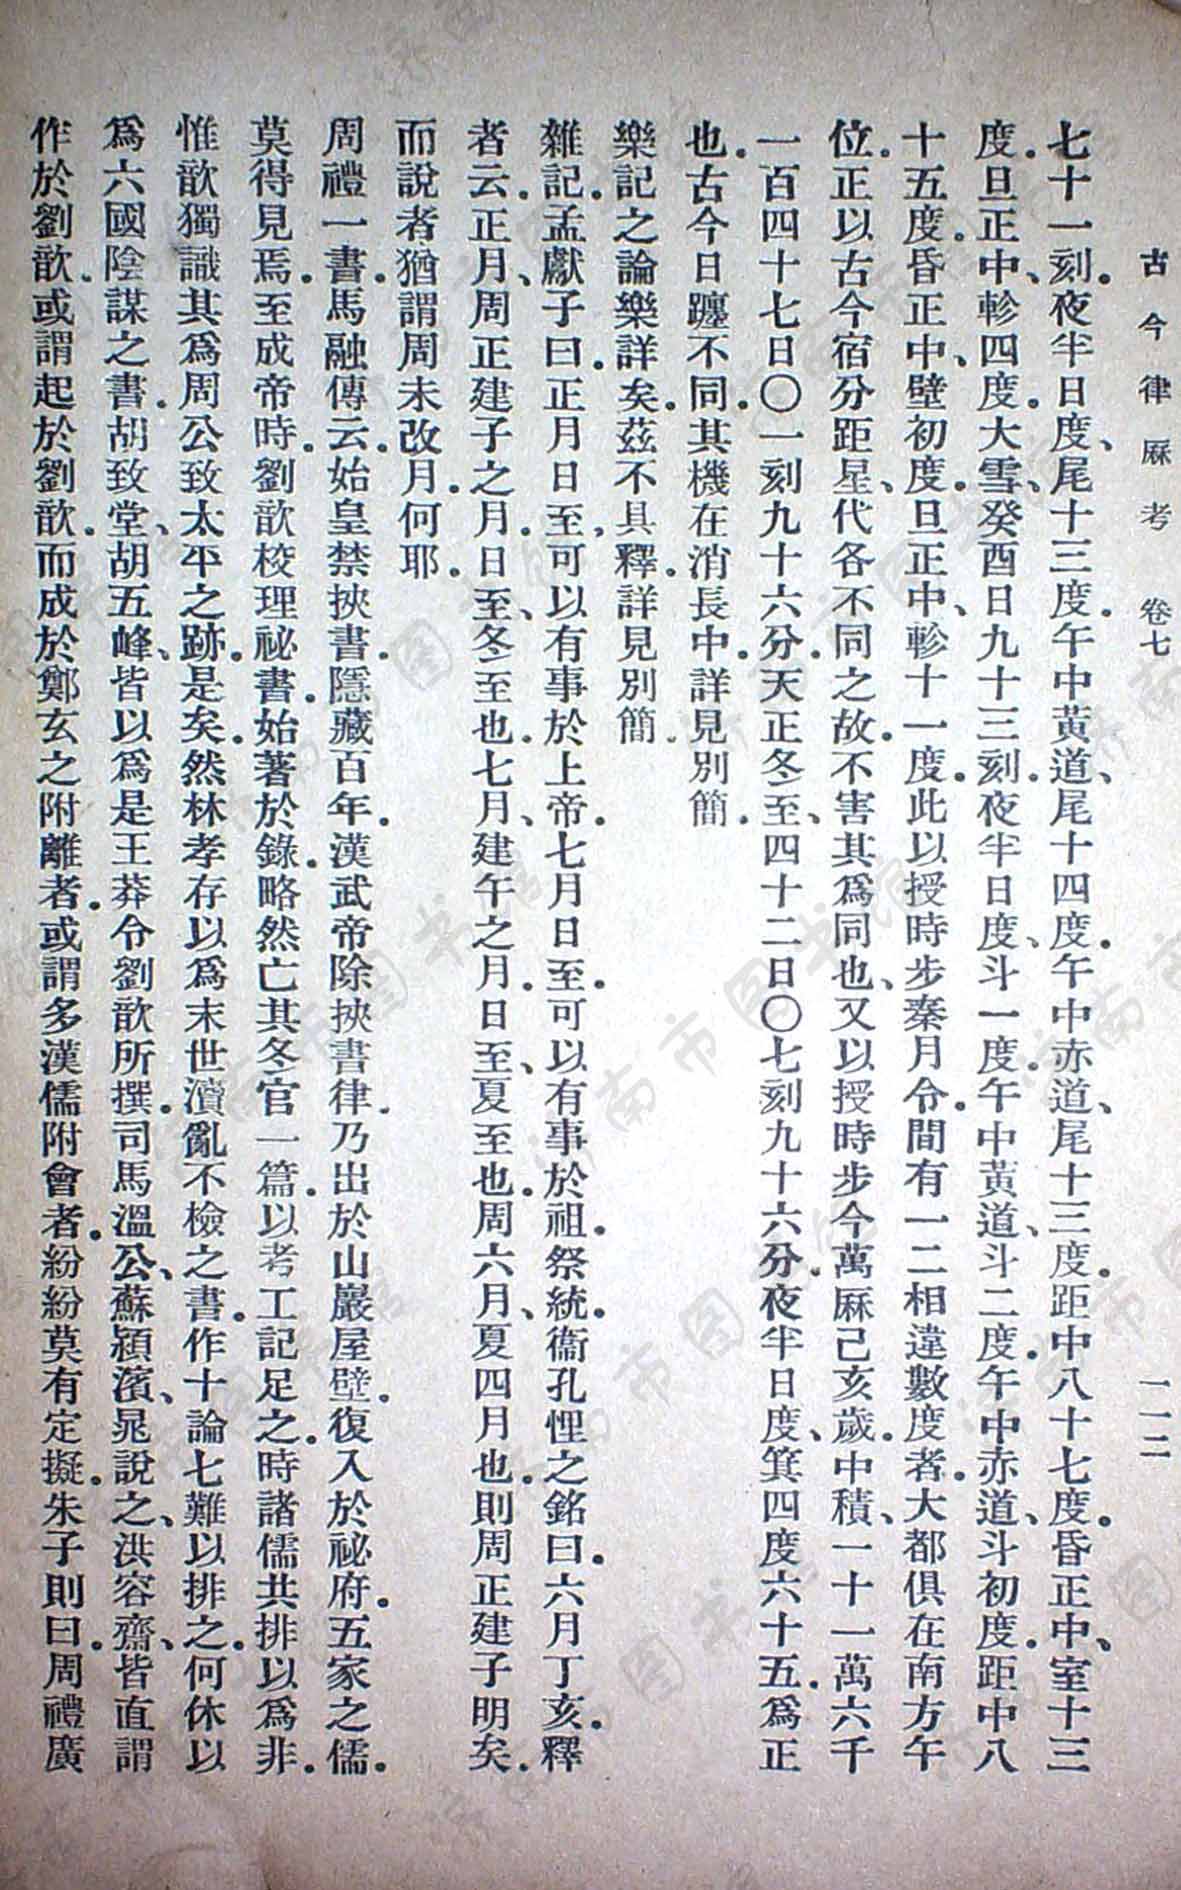 古今律厤考 卷七 一一二
七十一刻。夜半日度、尾十三度。午中黄道、尾十四度。午中赤道、尾十三度。距中八十七度。昏正中、室十三
度。旦正中、軫四度。大雪、癸酉日九十三刻。夜半日度、斗一度。午中黄道、斗二度。午中赤道、斗初度。距中八
十五度。昏正中、壁初度。旦正中、軫十一度。此以授時步秦月令。間有一二相違數度者。大都俱在南方午
位。正以古今宿分距星、代各不同之故。不害其爲同也、又以授時步今萬厤己亥歲。中積、一十一萬六千
一百四十七日〇一刻九十六分。天正冬至、四十二日〇七刻九十六分。夜半日度、箕四度六十五。爲正
也。古今日躔不同。其機在消長中。詳見別簡。
樂記之論樂詳矣。茲不具釋。詳見別簡。
雜記。孟獻子曰。正月日至、可以有事於上帝。七月日至。可以有事於祖。祭統。衞孔悝之銘曰。六月丁亥。釋
者云。正月、周正建子之月。日至、冬至也。七月、建午之月。日至、夏至也。周六月、夏四月也。則周正建子明矣。
而說者猶謂周未改月。何耶。
周禮一書。馬融傳云。始皇禁挾書。隱藏百年。漢武帝除挾書律。乃出於山巖屋壁。復入於祕府。五家之儒。
莫得見焉。至成帝時。劉歆校理祕書。始著於錄。略然亡其冬官一篇。以考工記足之。時諸儒共排以爲非。
惟歆獨識其爲周公致太平之跡。是矣。然林孝存以爲末世瀆亂不檢之書。作十論七難以排之。何休以
爲六國陰謀之書。胡致堂、胡五峰、皆以爲是王莽令劉歆所撰。司馬溫公、蘇潁濱、晁說之、洪容齋、皆直謂
作於劉歆。或謂起於劉歆。而成於鄭玄之附離者。或謂多漢儒附會者。紛紛莫有定擬。朱子則曰。周禮廣